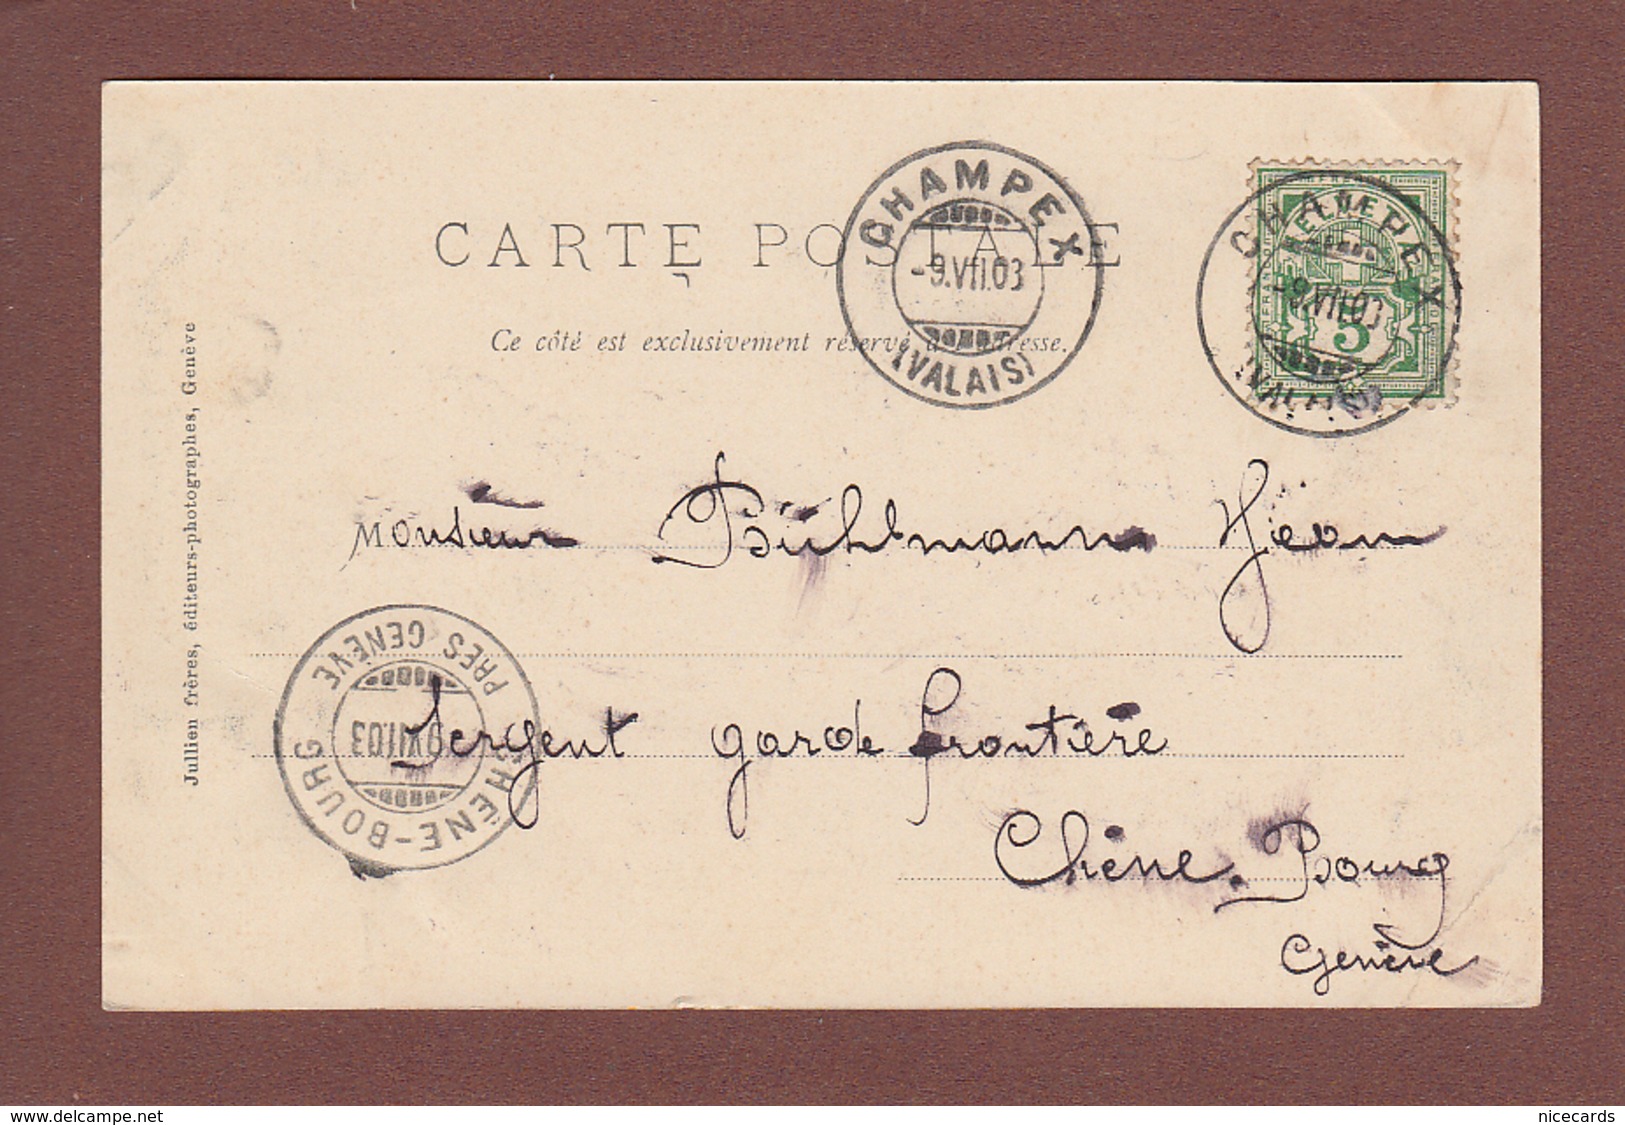 CARTE POSTALE
Ce côté est exclusivement réservé à l'adresse.
CHAMPEX
-9.VII.03
(VALAIS)
HELVETIA
5
CHAMPEX
-9.VII.03
(VALAIS)
Monsieur Bühlmann Jean
Sergent garde frontière
Chêne-Bourg
Genève
CHÊNE-BOURG
PRÈS GENÈVE
Jullien frères, éditeurs-photographes, Genève
www.delcampe.net
nicecards